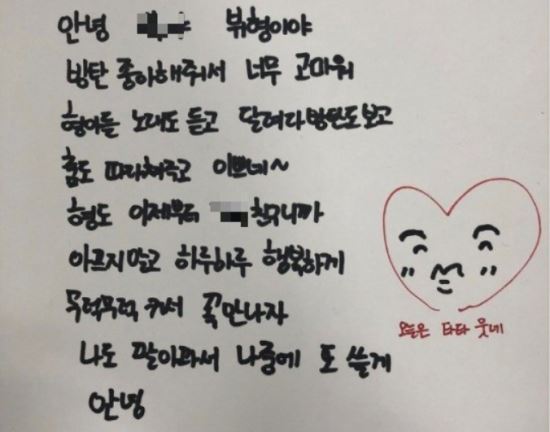 안녕 야 뷔형이야
방탄 좋아해줘서 너무 고마워
형아들 노래도 듣고 달려라방탄도보고
춤도 따라해주고 이쁘네~
형도 이제부터 친구니까
아프지말고 하루하루 행복하게
무럭무럭 커서 꼭만나자
나도 팔아파서 나중에 또 쓸게
안녕
오늘은 타타 웃네